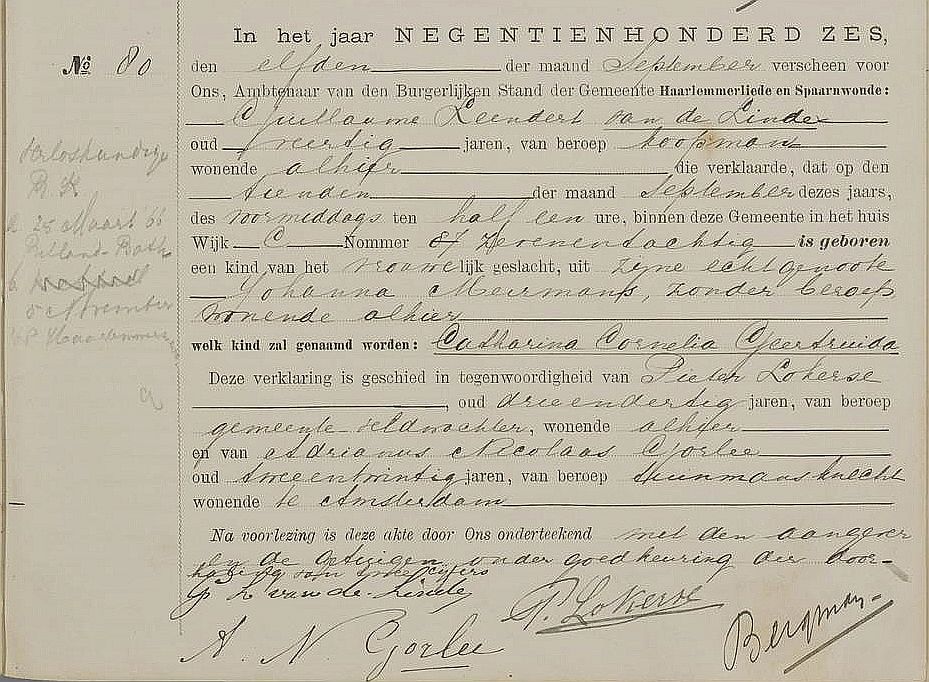 In het jaar NEGENTIENHONDERD ZES,
No 80
den elfden der maand September verscheen voor
Ons, Ambtenaar van den Burgerlijken Stand der Gemeente Haarlemmerliede en Spaarnwoude:
Guillaume Leendert van de Linde
oud veertig jaren, van beroep koopman
wonende alhier die verklaarde, dat op den
tienden der maand September dezes jaars,
des voormiddags ten half een ure, binnen deze Gemeente in het huis
Wijk C Nommer 87 zevenentachtig is geboren
een kind van het vrouwelijk geslacht, uit zijne echtgenoote
Johanna Meermans, zonder beroep
wonende alhier
welk kind zal genaamd worden: Catharina Cornelia Geertruida
Deze verklaring is geschied in tegenwoordigheid van Pieter Lokerse
, oud drieendertig jaren, van beroep
gemeente veldwachter, wonende alhier
en van Adrianus Nicolaas Gorlee
oud tweeentwintig jaren, van beroep tuinmansknecht
wonende te Amsterdam
Na voorlezing is deze akte door Ons onderteekend met den aangever
en de getuigen onder goedkeuring der door-
haling van twee cijfers
G L van de Linde
P. Lokerse
A. N Gorlee
Bergman
R. K
25 Maart 66
5 November